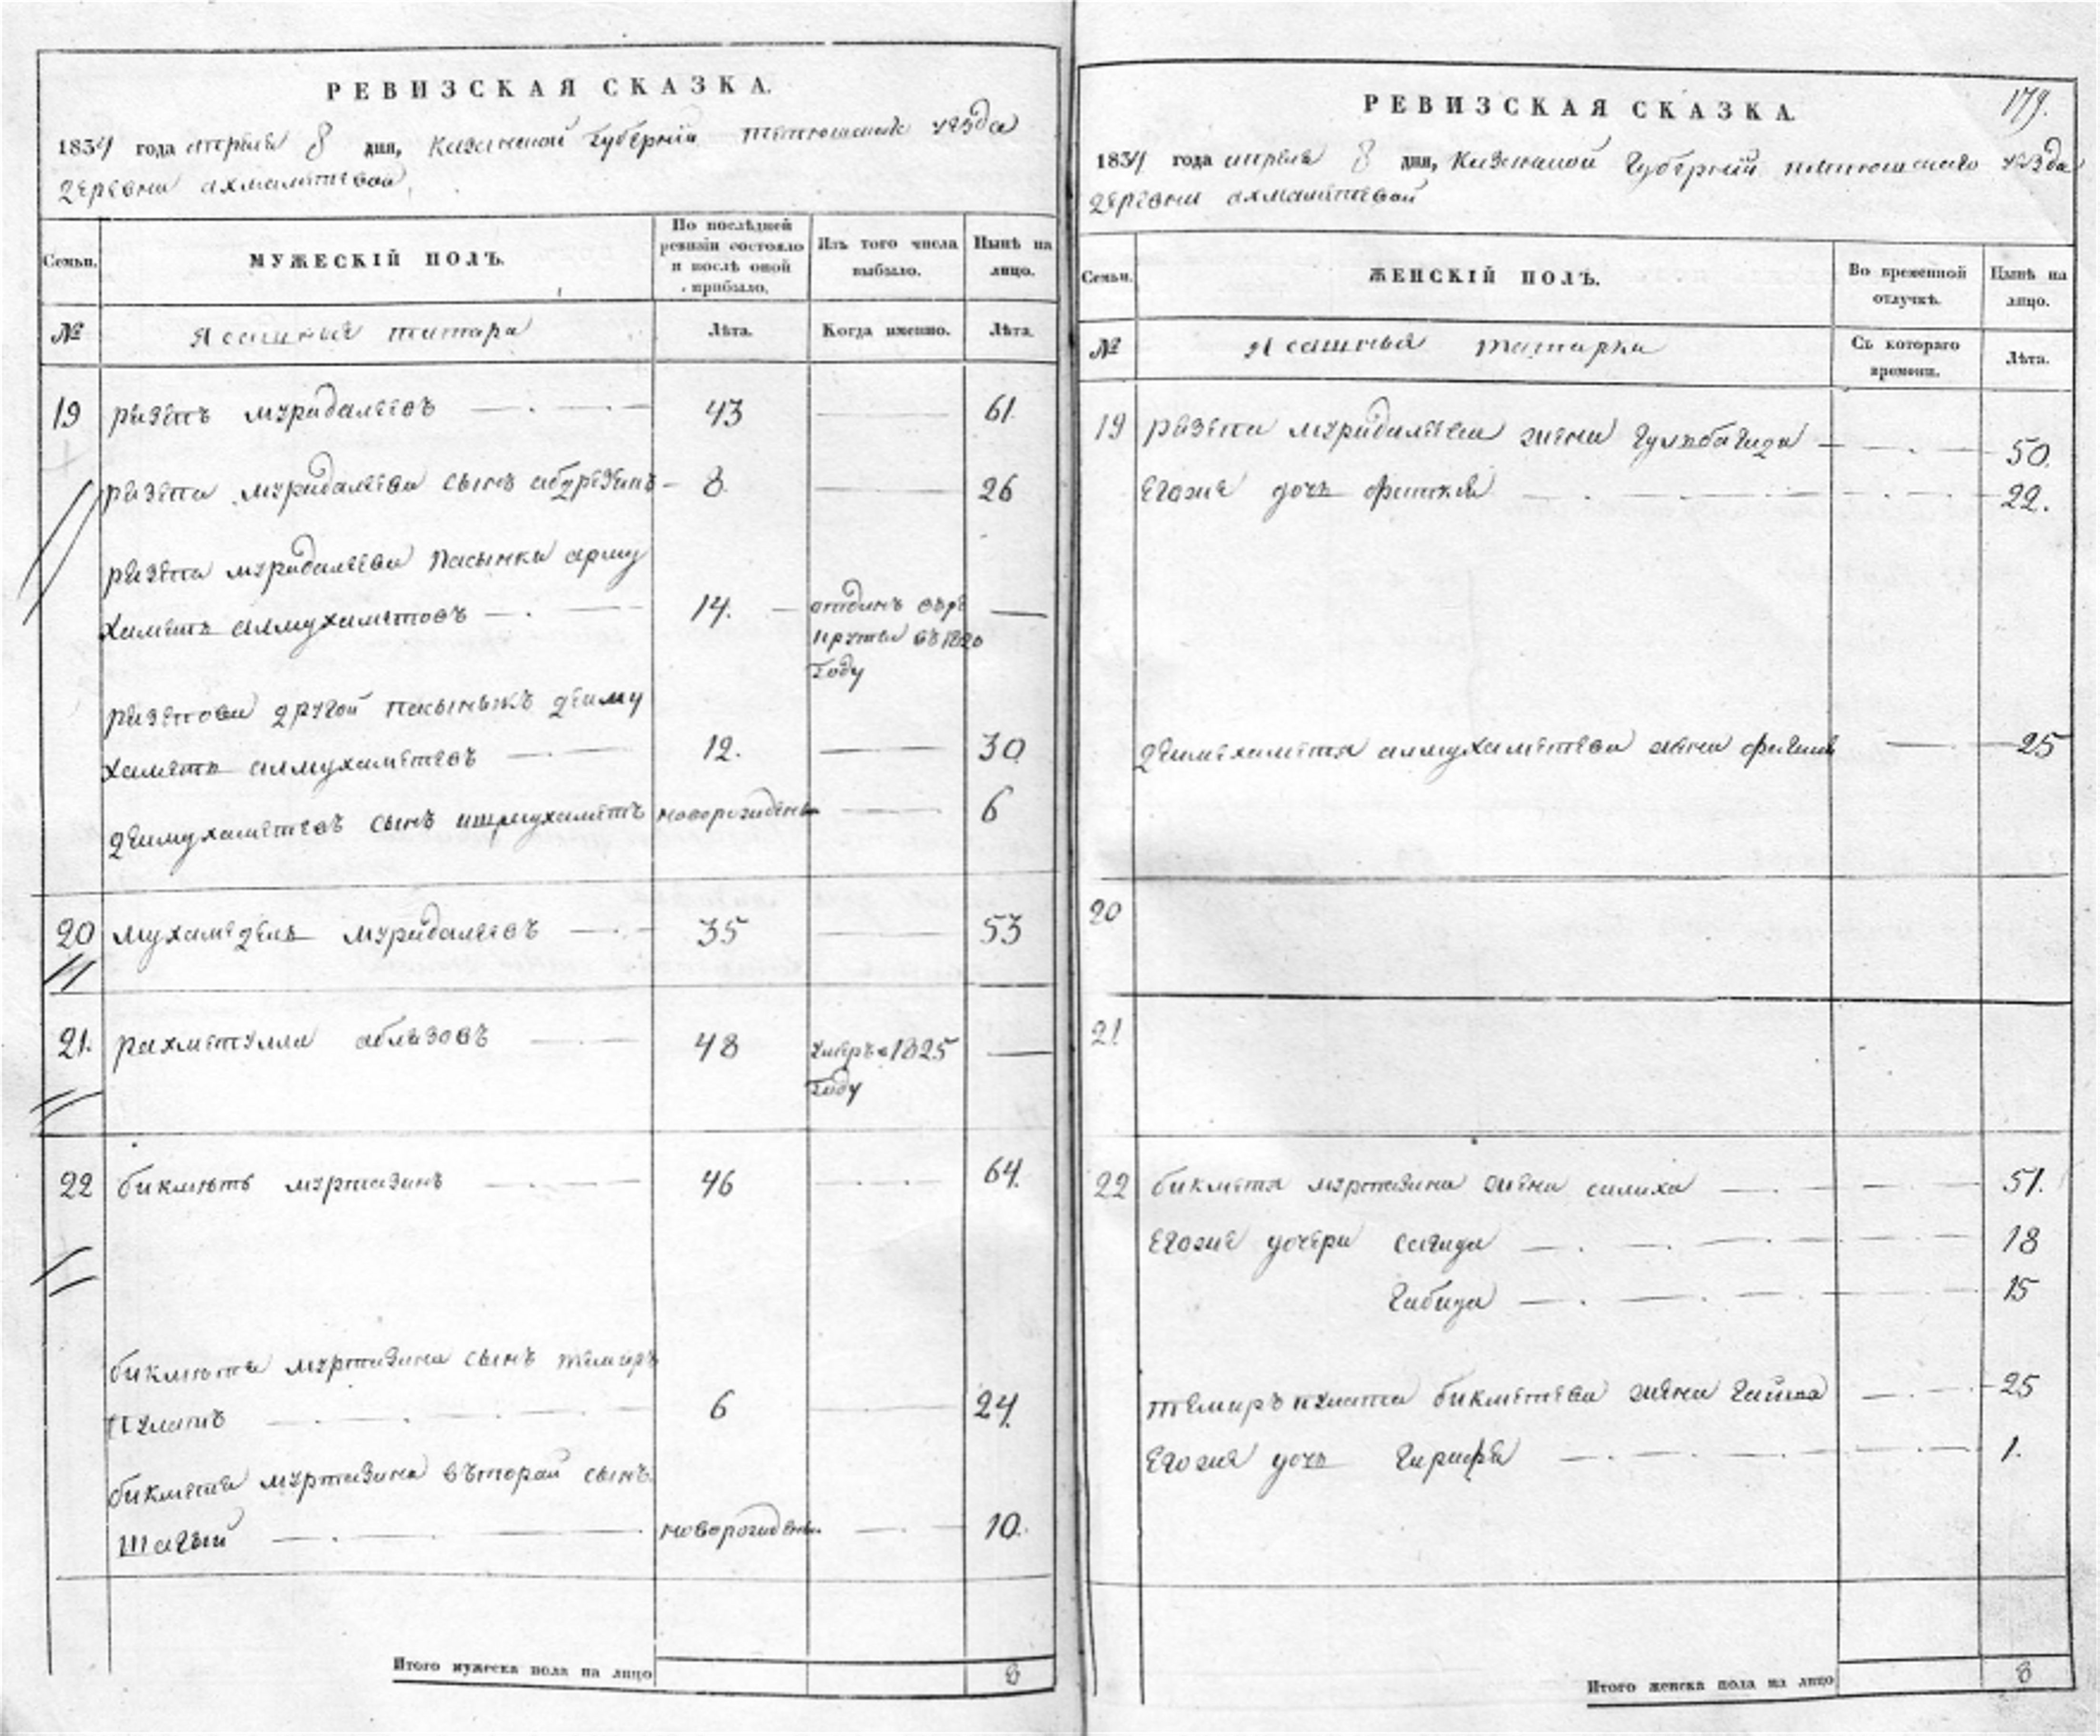 РЕВИЗСКАЯ СКАЗКА.
1834 года апреля 8 дня, Казанской Губернiи тетюшскаго уезда
деревни ахмаметевой
Семьи.
МУЖЕСКIЙ ПОЛЪ.
По послѣдней ревизiи состояло и послѣ оной прибыло.
Изъ того числа выбыло.
Нынѣ на лицо.
№
Ясашныя татара
Лѣта.
Когда именно.
Лѣта.
19 резепъ муридалеевъ 43 61.
резепа муридалеева сынъ 8 26
резепа муридалеева пасынки
хаметъ алмухаметовъ 14. отданъ
въ 1820
году
резепова другой пасынокъ деиму
хаметъ алмухаметевъ 12. 30
деимухаметевъ сынъ новорожденъ 6
20 мухамеденъ муридалеевъ 35 53
21. рахметулла аблязовъ 48 умеръ в 1825
году
22 бикметь муртазинъ 46 64.
бикметя муртазина сынъ темиръ
пулатъ 6 24.
бикметя муртазина въторай сынъ
шагый новорожденъ 10.
Итого мужеска пола на лицо 8
РЕВИЗСКАЯ СКАЗКА.
179.
1834 года апреля 8 дня, Казанской Губернiи тетюшскаго уезда
деревни ахмаметевой
Семьи.
ЖЕНСКIЙ ПОЛЪ.
Во временной отлучкѣ.
Нынѣ на лицо.
№
Ясашныя татарки
Съ котораго времени.
Лѣта.
19 резепа муридалеева жена 50.
Егоже дочь 22.
деимухаметя алмухаметева жена 25
20
21
22 бикметя муртазина жена салиха 51.
Егоже дочери сагида 18
габида 15
темиръ пулата бикметева жена 25
Егоже дочь 1.
Итого женска пола на лицо 8